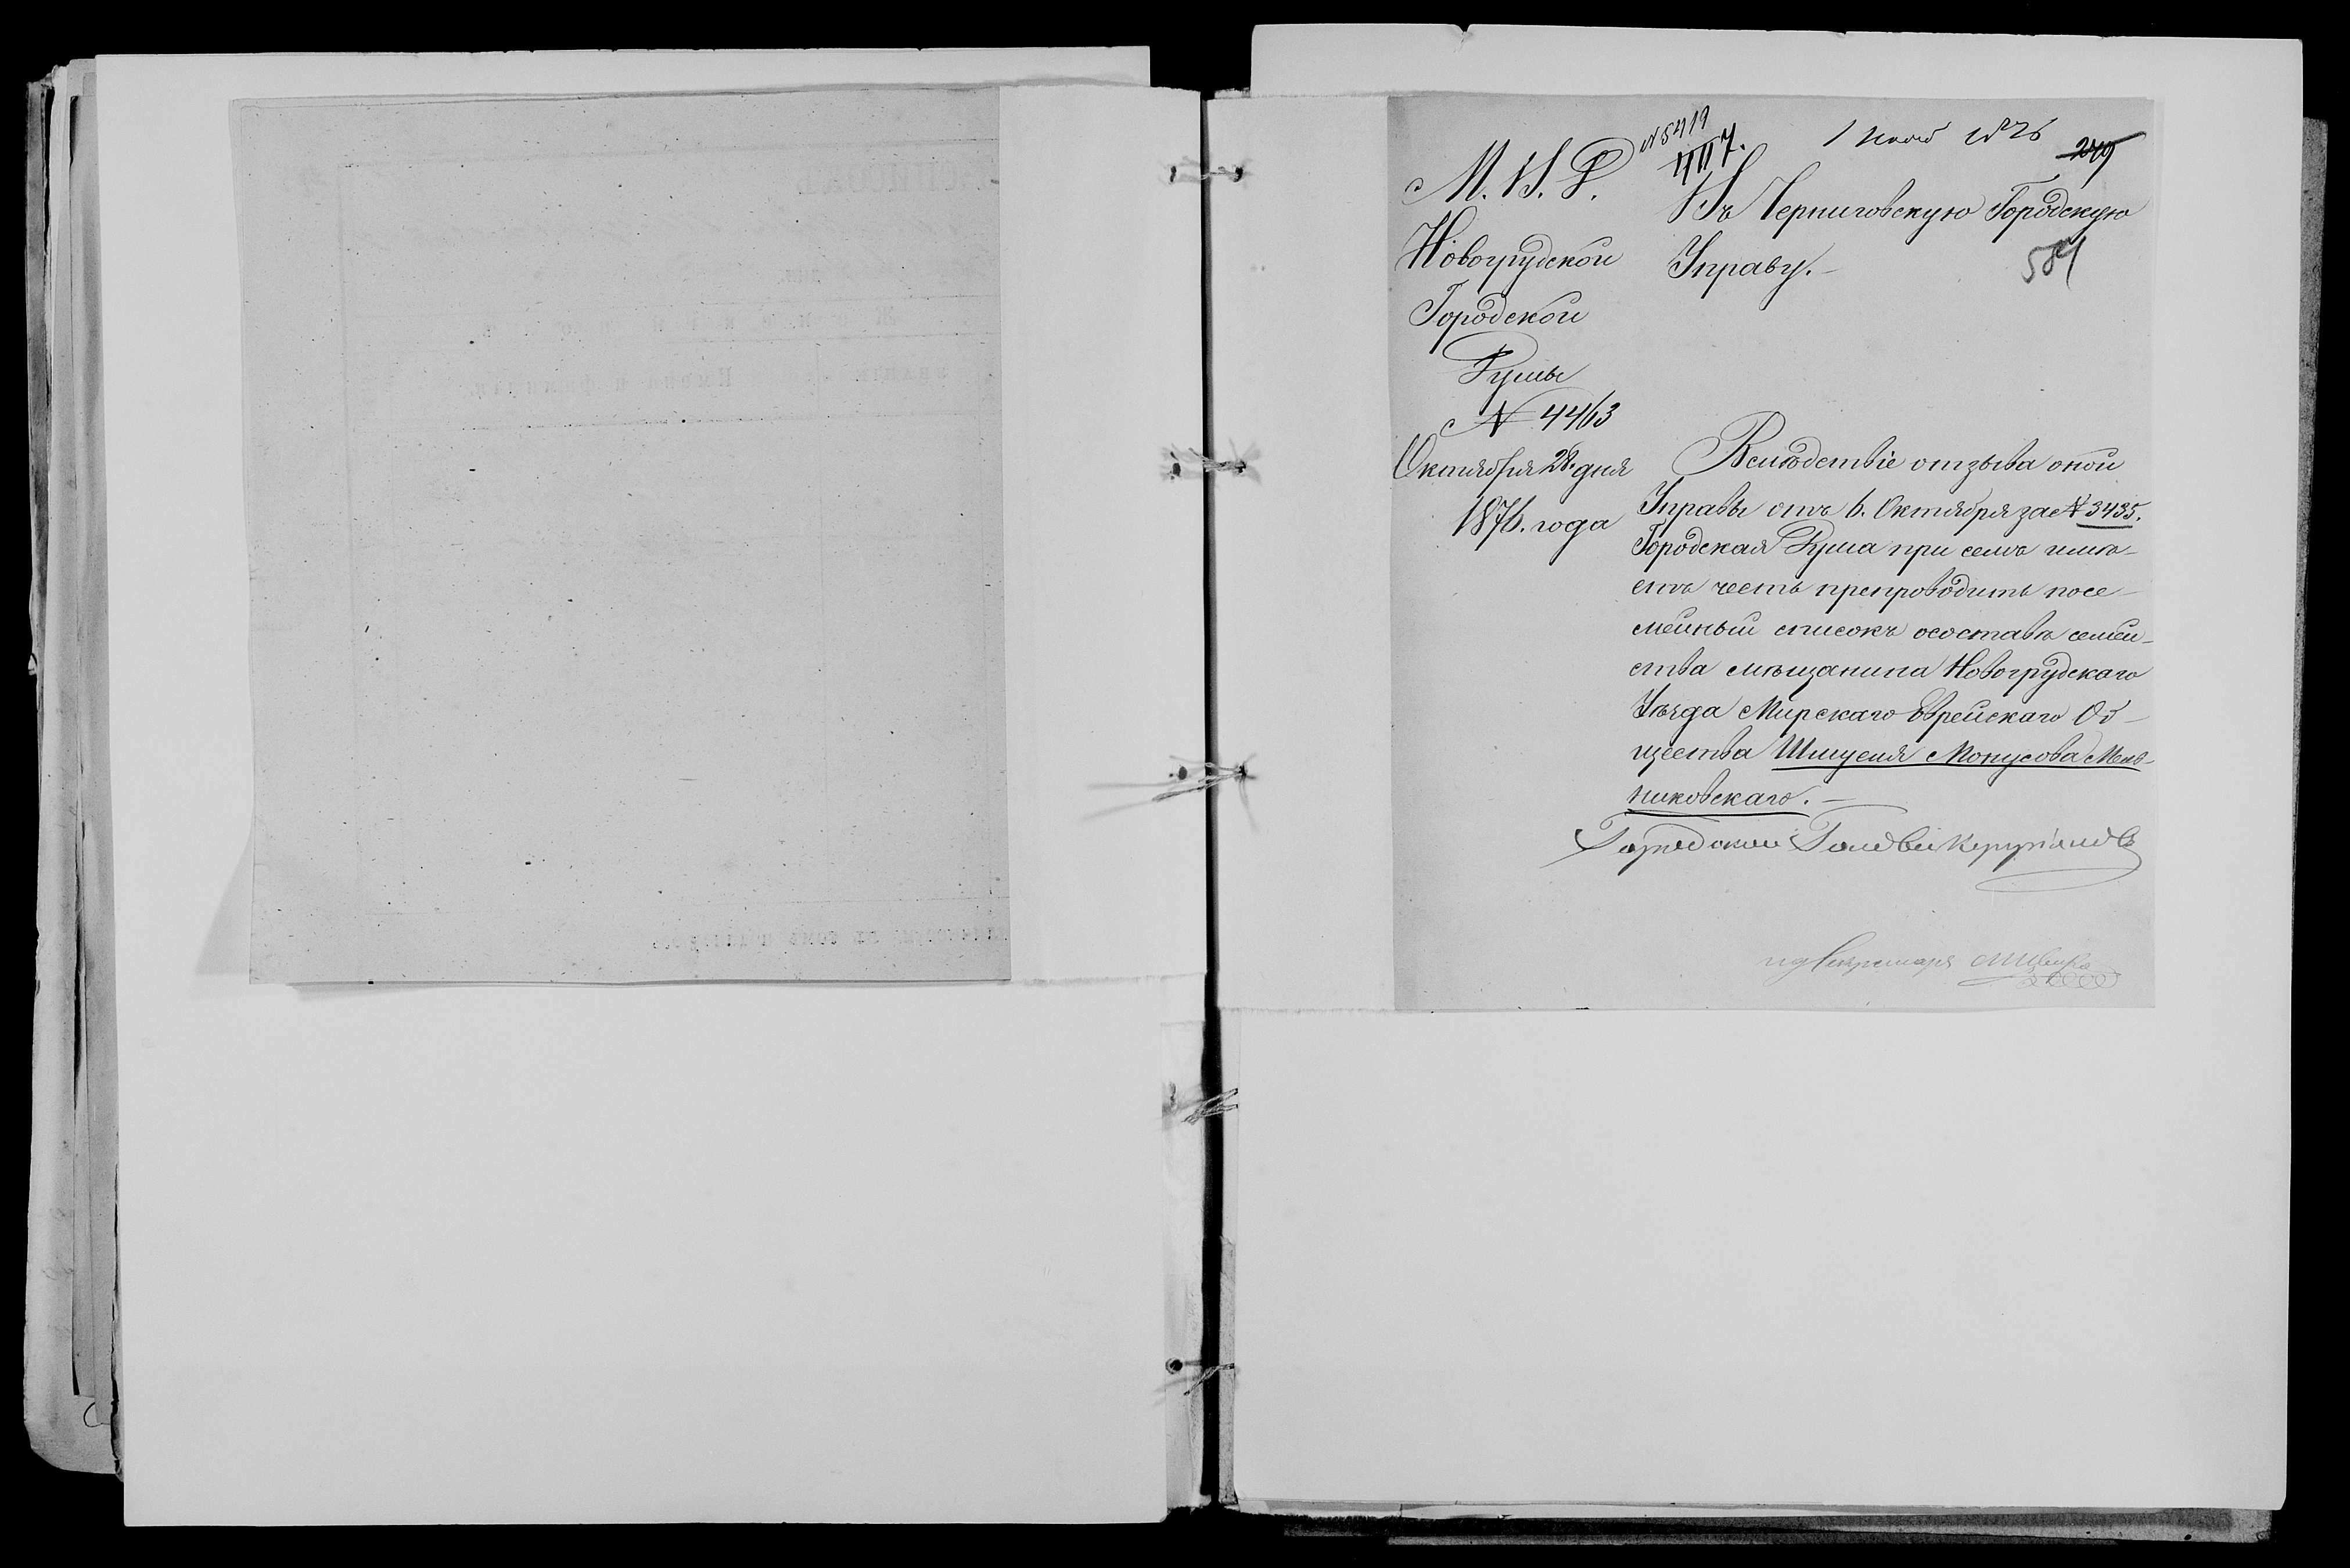 № 5419
1 Нояб 1876
М. В. Д.
Новогрудской
Городской
Думы
№ 4463
Октября 28 дня
1876. года
Въ Черниговскую Городскую
Управу.—
584
Вслѣдствіе отзыва оной
Управы отъ 6. Октября за № 3435.
Городская Дума при семъ имѣ-
етъ честь препроводить посе-
мейный списокъ о составѣ семей-
ства мѣщанина Новогрудскаго
Уѣзда Мирскаго Еврейскаго Об-
щества Шмуеля Монусова Мель-
никовскаго.—
Городской Голова
и д Секретаря